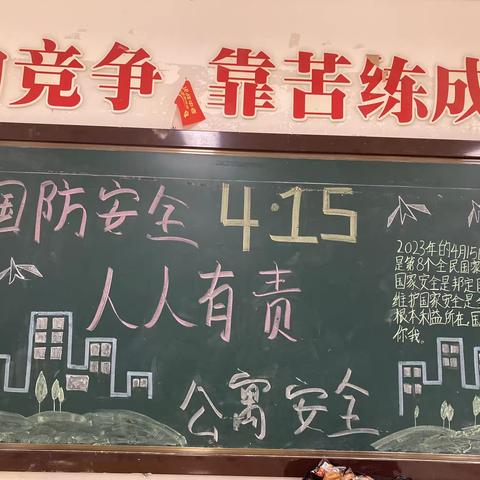 竞争 靠苦练成
国防安全 4·15
人人有责
2023年的4月15
是第8个全民国家
国家安全是邦定国
维护国家安全是全
根本利益所在,国
你我。
公寓安全